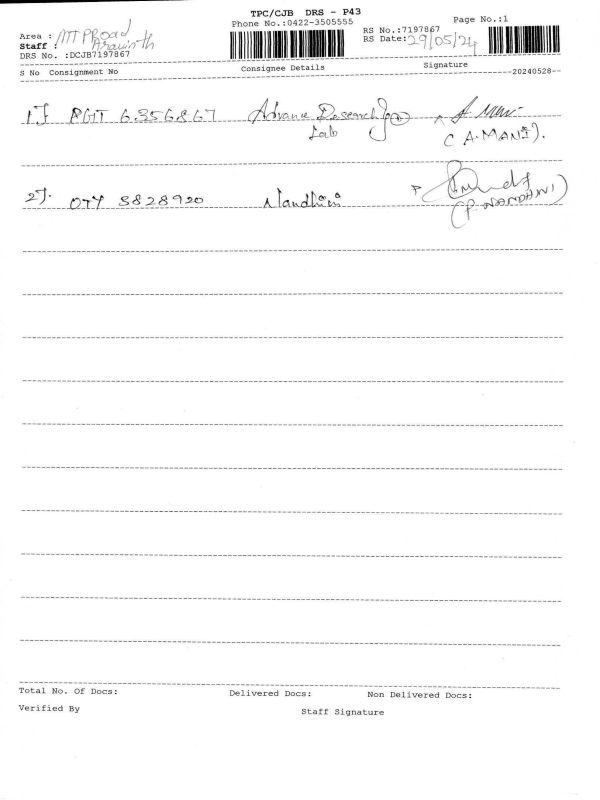 TPC/CJB DRS - P43
Phone No.:0422-3505555
Page No.:1
RS No.:7197867
Area : MTP Road
RS Date: 29/05/24
Staff : Aravinth
DRS No. :DCJB7197867
S No Consignment No Consignee Details Signature
--20240528--
1) 6356867 Advance Research
Lab
A. Mani
(A.MANI).
2) 3828920 Nandhini
(P. NANDHINI)
Total No. Of Docs: Delivered Docs: Non Delivered Docs:
Verified By Staff Signature